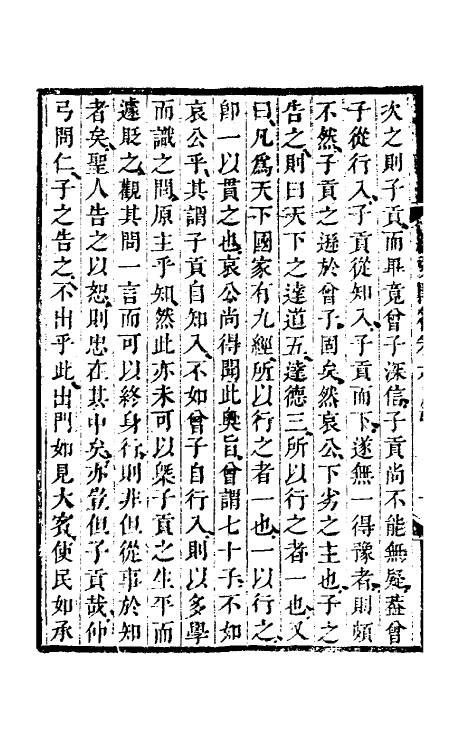 次之則子貢而畢竟曾子深信子貢尚不能無疑蓋曾
子從行入子貢從知入子貢而下遂無一得豫者則頗
不然子貢之遜於曾子固矣然哀公下劣之主也子之
告之則曰天下之達道五達德三所以行之者一也又
曰凡爲天下國家有九經所以行之者一也一以行之
卽一以貫之也哀公尚得聞此奧旨曾謂七十子不如
哀公乎其謂子貢自知入不如曾子自行入則以多學
而識之問原主乎知然此亦未可以槩子貢之生平而
遽貶之觀其問一言而可以終身行則非但從事於知
者矣聖人告之以恕則忠在其中矣亦豈但子貢哉仲
弓問仁子之告之不出乎此出門如見大賓使民如承